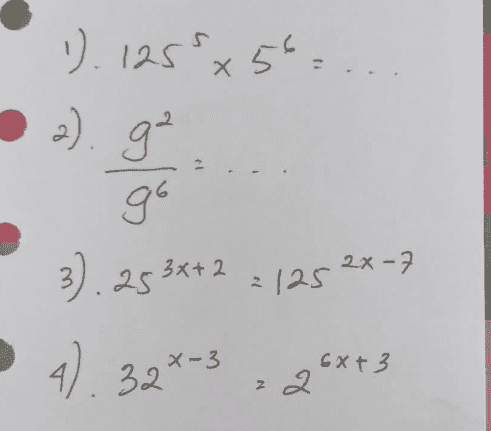 1). 125⁵ x 5⁶ = ...
2). g² / g⁶ = ....
3). 25³ˣ⁺² = 125²ˣ⁻⁷
4). 32ˣ⁻³ = 2⁶ˣ⁺³